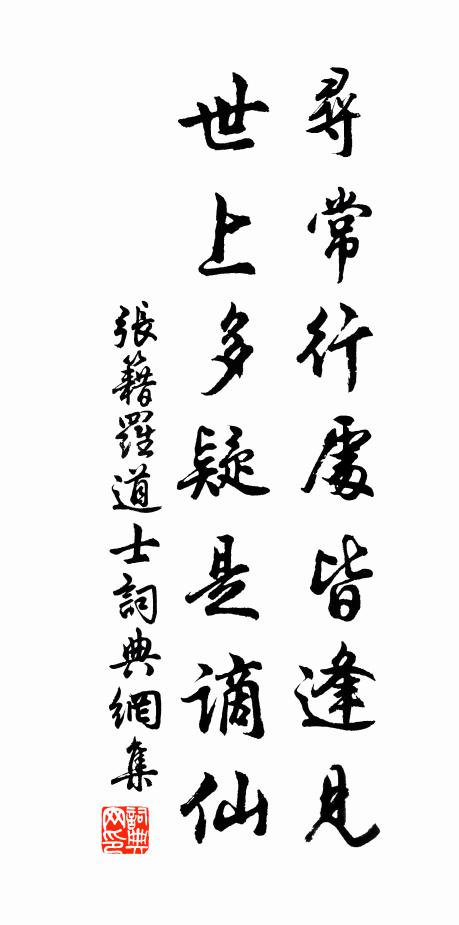 尋常行處皆逢見
世上多疑是謫仙
張籍羅道士詞典網集
詞典网印